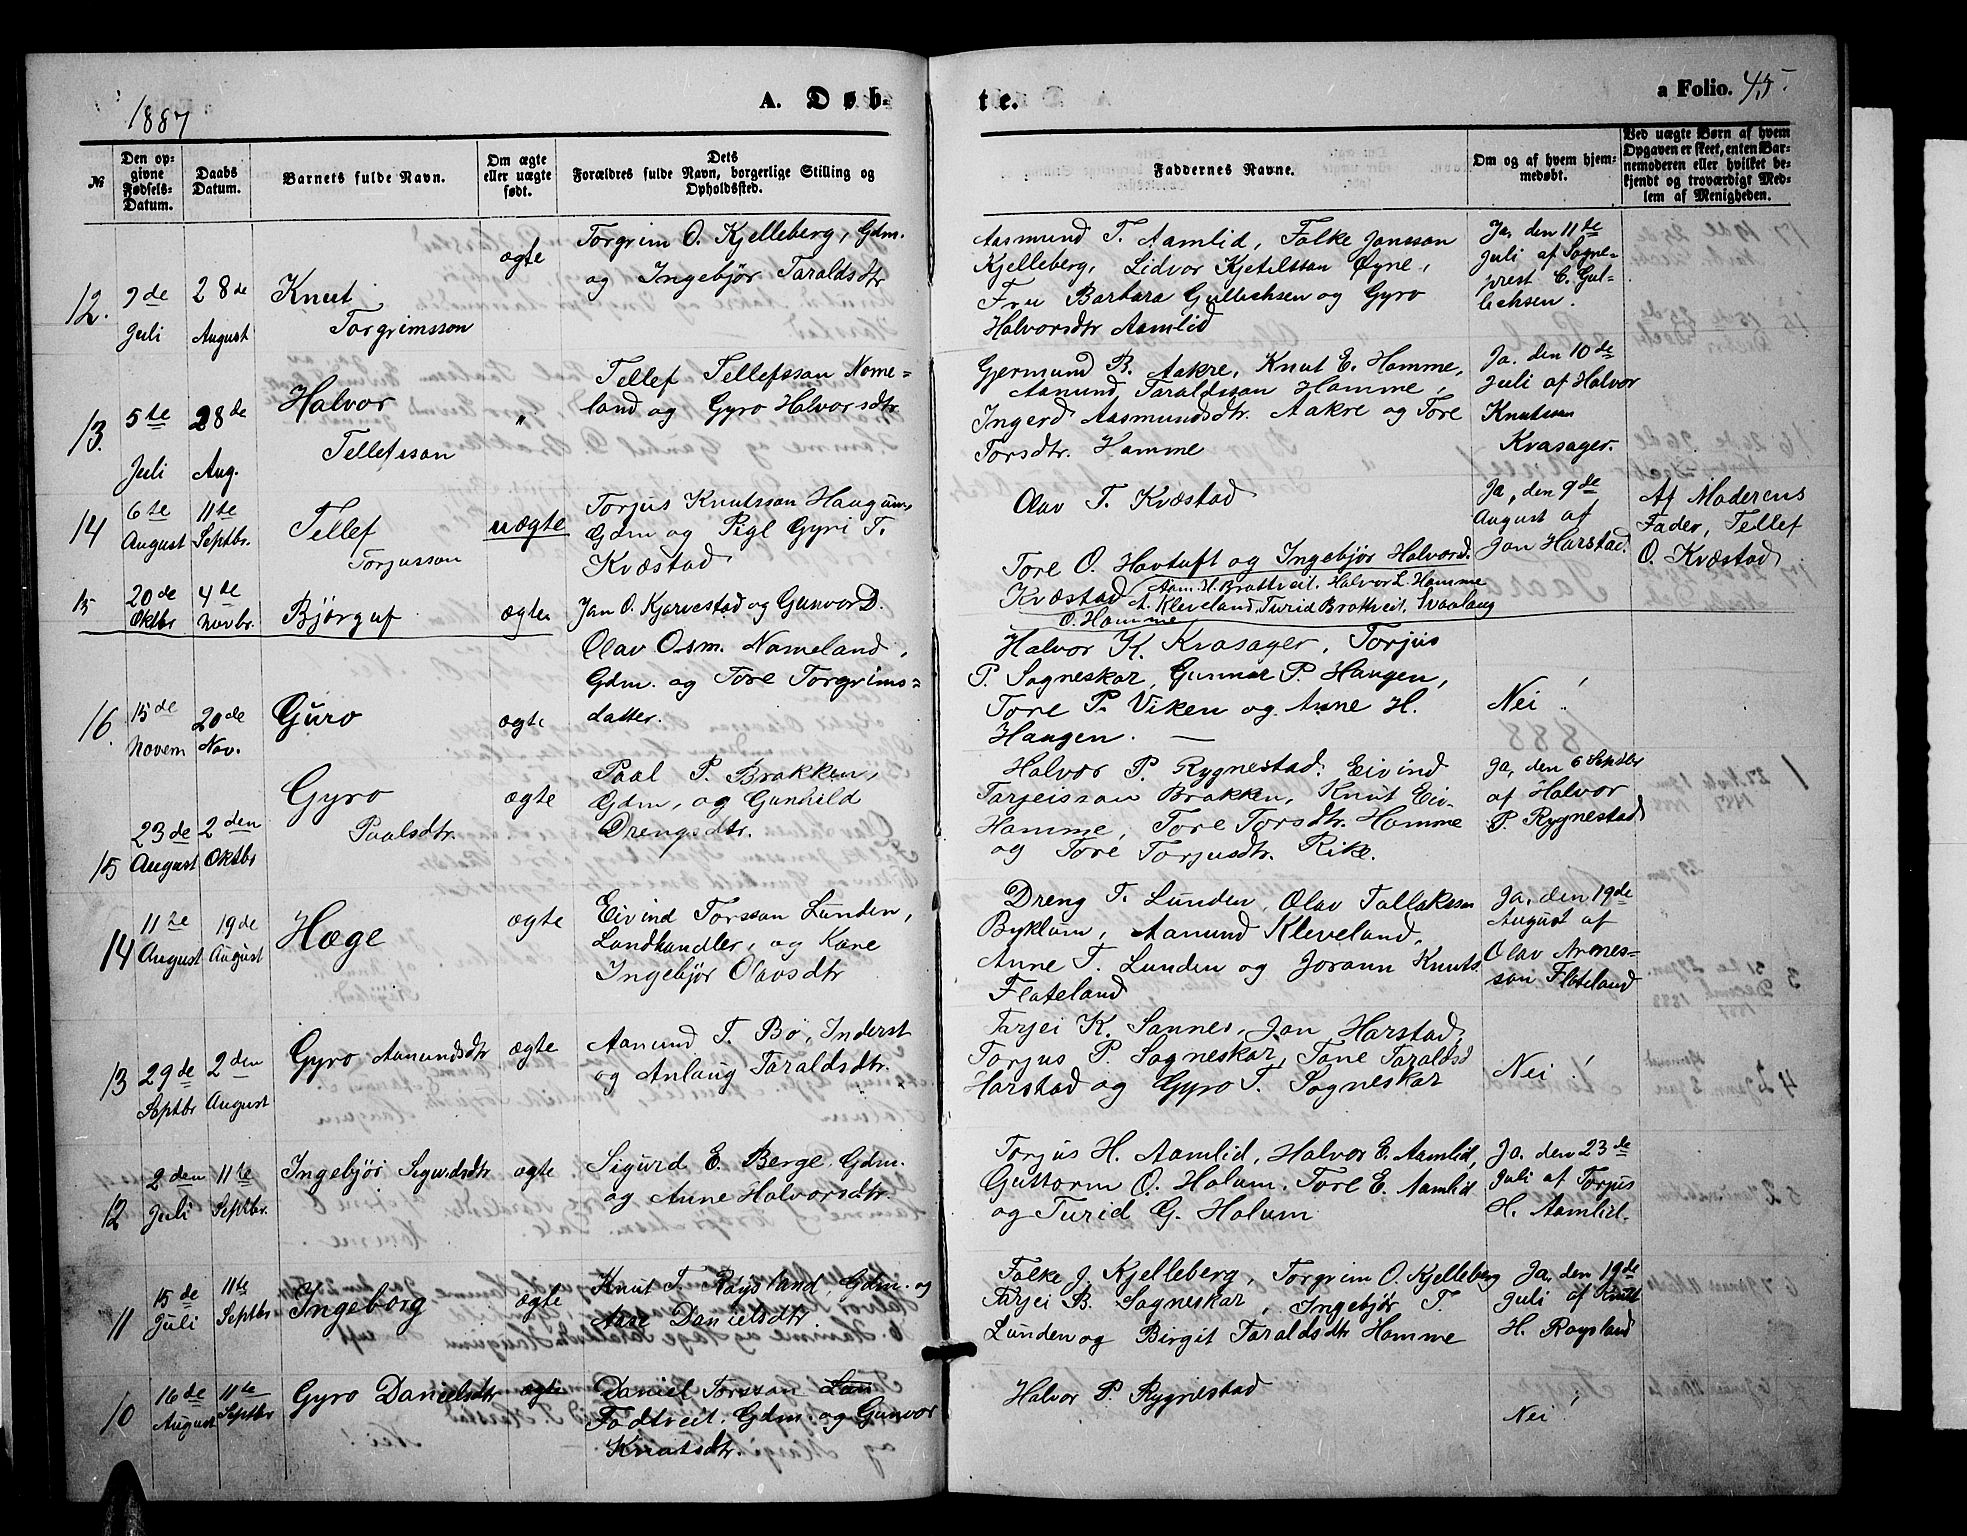 1887
A. Døb-
te.
a Folio. 45.
№
Den op-
givne
Fødsels-
Datum.
Daabs
Datum.
Barnets fulde Navn.
Om ægte
eller uægte
født.
Dets
Forældres fulde Navn, borgerlige Stilling og
Opholdssted.
Faddernes Navne.
Om og af hvem hjem-
medøbt.
Ved uægte Børn af hvem
Opgaven er skeet, enten Bar-
nemoderen eller hvilket be-
kjendt og troværdigt Med-
lem af Menigheden.
12.
9de
Juli
28de
August
Knut
Torgrimsson
ægte
Torgrim O. Kjelleberg, Gdm.
og Ingebjør Taraldsdtr
Aasmund T. Aamlid, Folke Jonsson
Kjelleberg, Lidvor Kjetilsson Øyne,
Fru Barbara Gullichsen og Gyro
Halvorsdtr Aamlid
Ja, den 11de
Juli af Sogne-
prest C. Gul-
lichsen.
13.
5te
Juli
28de
Aug.
Halvor
Tellefsson
"
Tellef Tellefsson Nome-
land og Gyro Halvorsdtr
Gjermund B. Aakre, Knut E. Homme,
Aanund Taraldsson Homme,
Ingerd Aasmundsdtr. Aakre og Tore
Torsdtr. Homme
Ja, den 10de
Juli af Halvor
Knutsson
Kvasager.
14
6te
August
11te
Septbr.
Tellef
Torjusson
uægte
Torjus Knutsson Haugum,
Gdm og Pigl Gyri T.
Kvæstad
Olav T. Kvæstad
Tore O. Hovtuft og Ingebjør Halvord.
Kvæstad
Ja, den 9de
August af
Jon Harstad.
Af Moderens
Fader, Tellef
O. Kvæstad
15
20de
Oktbr
4de
Novbr.
Bjørguf
ægte
Jon O. Kjørvestad og Gunvor D.
Aam. H. Brottveit, Halvor L. Homme
A. Kleveland, Turid Brottveit, Svaalaug
O. Homme
16.
15de
Novem
20de
Nov.
Guro
ægte
Olav Osm. Nomeland,
Gdm. og Tore Torgrims-
datter.
Halvor K. Kvasager, Torjus
P. Sogneskar, Gunnar P. Haugen,
Tore P. Viken og Anne H.
Haugen.
Nei!
15
23de
August
2den
Oktbr
Gyro
Paalsdtr.
ægte
Paal P. Brokken,
Gdm, og Gunhild
Drengsdtr.
Halvor P. Rygnestad. Eivind
Tarjeisson Brokken, Knut Eiv.
Homme, Tore Torsdtr. Homme
og Tore Torjusdtr. Rike.
Ja, den 6 Septbr
af Halvor
P. Rygnestad
14
11te
August
19de
August
Hæge
ægte
Eivind Torsson Lunden,
Landhandler, og Kone
Ingebjør Olavsdtr
Dreng T. Lunden, Olav Tallaksen
Byklum, Aanund Kleveland,
Anne T. Lunden og Jorann Knuts.
Flateland
Ja, den 19de
August af
Olav Arnes-
son Flateland
13
29de
Septbr
2den
August
Gyro Aanundsdtr
ægte
Aanund T. Bø, Inderst
og Anlaug Taraldsdtr.
Tarjei K. Sannes, Jon Harstad,
Torjus P. Sogneskar, Tone Taraldsd
Harstad og Gyro T. Sogneskar
Nei!
12
2den
Juli
11te
Septbr.
Ingebjør Sigurdsdtr
ægte
Sigurd E. Berge, Gdm.
og Anne Halvorsdtr.
Torjus H. Aamlid, Halvor E. Aamlid,
Guttorm O. Holum, Tore E. Aamlid
og Turid G. Holum
Ja, den 23de
Juli af Torjus
H. Aamlid.
11
15de
Juli
11te
Septbr
Ingeborg
ægte
Knut T. Røysland, Gdm. og
Aase Danielsdtr.
Folke J. Kjelleberg, Torgrim O. Kjelleberg
Tarjei B. Sogneskar, Ingebjør T.
Lunden og Birgit Taraldsdtr Homme
Ja, den 19de
Juli af Knut
H. Roysland
10
16de
August
11te
Septbr
Gyro Danielsdtr
ægte
Daniel Torsson Lan
Fodtveit, Gdm. og Gunvor
Knutsdtr.
Halvor P. Rygnestad
Nei!